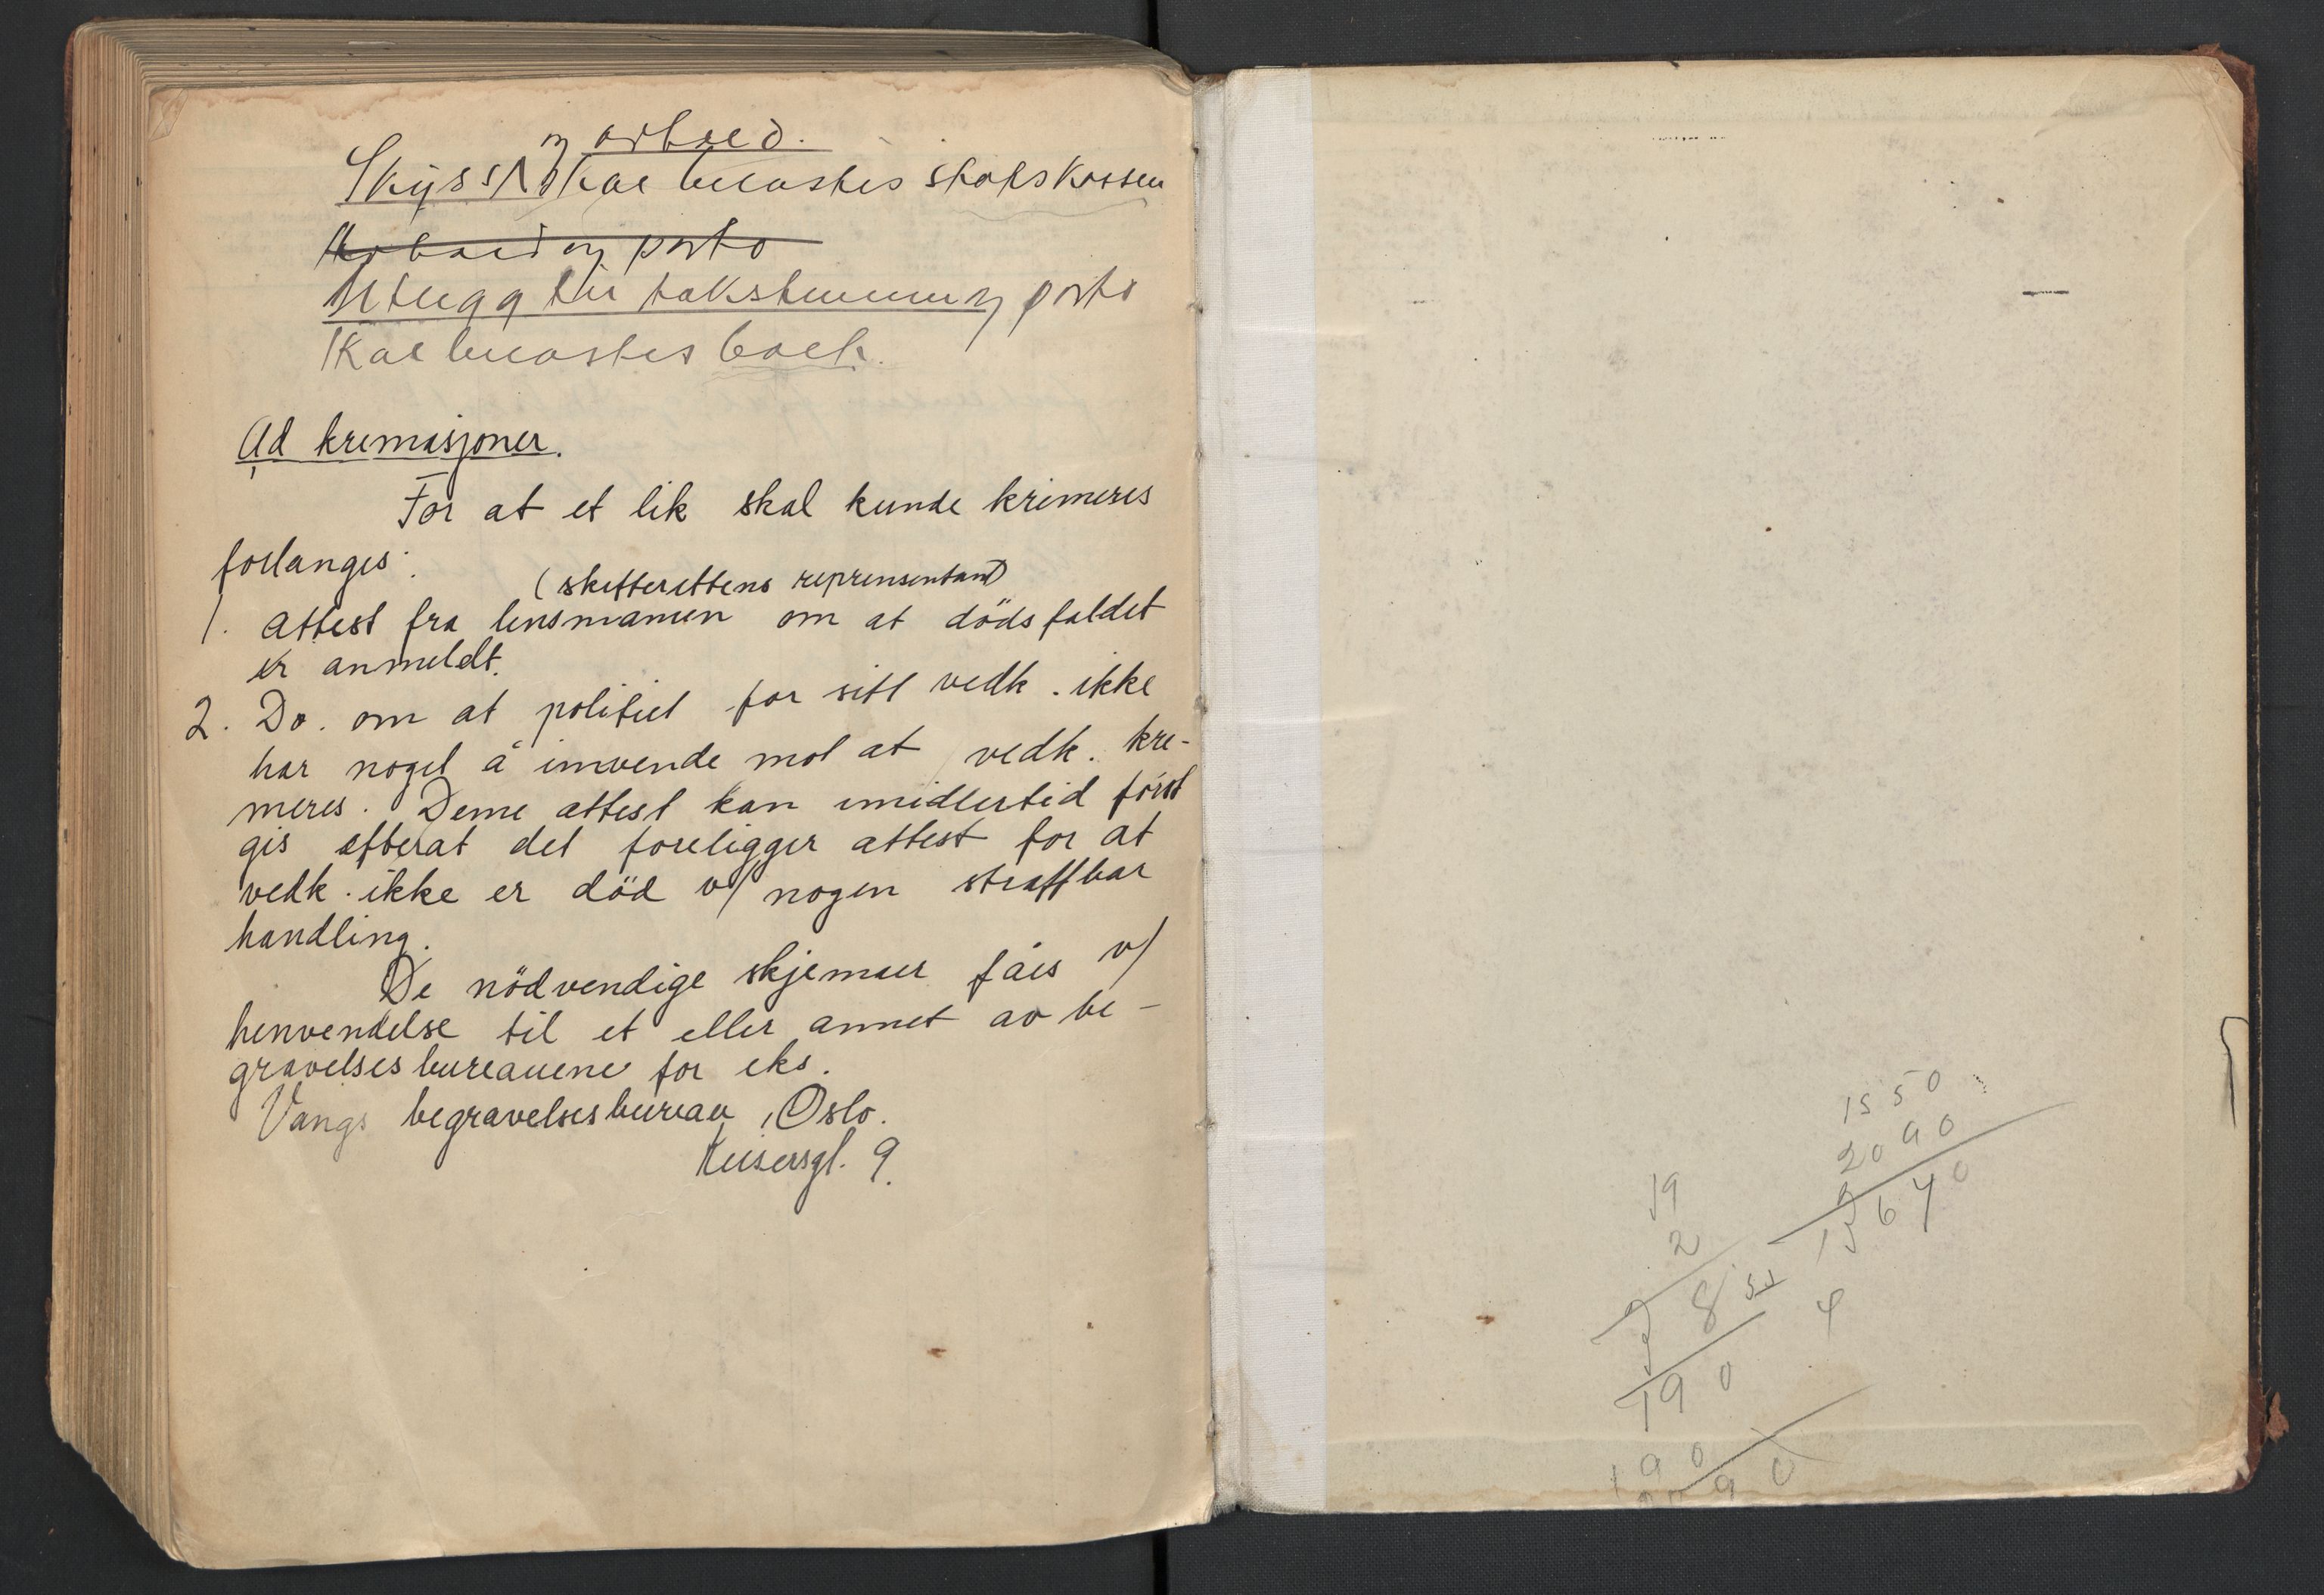 og arbeid.
Skyss skal belastes statskassen
Arbeid og porto
Utlegg til takstmenn og porto
skal belastes boet.
Ad kremasjoner.
For at et lik skal kunde krimeres
forlanges:
(skifterettens reprensentant)
1. Attest fra lensmannen om at dödsfaldet
er anmeldt.
2. Do. om at politiet for sitt vedk. ikke
har noget å innvende mot at vedk. kre-
meres. Denne attest kan imidlertid först
gis efterat det foreligger attest for at
vedk. ikke er död v/ nogen straffbar
handling.
De nödvendige skjemaer fåes v/
henvendelse til et eller annet av be-
gravelsesbureauene for eks.
Vangs begravelsesbureau, Oslo.
Keisersgt. 9.
1550
2090
3640
19
2
38
190
4
190